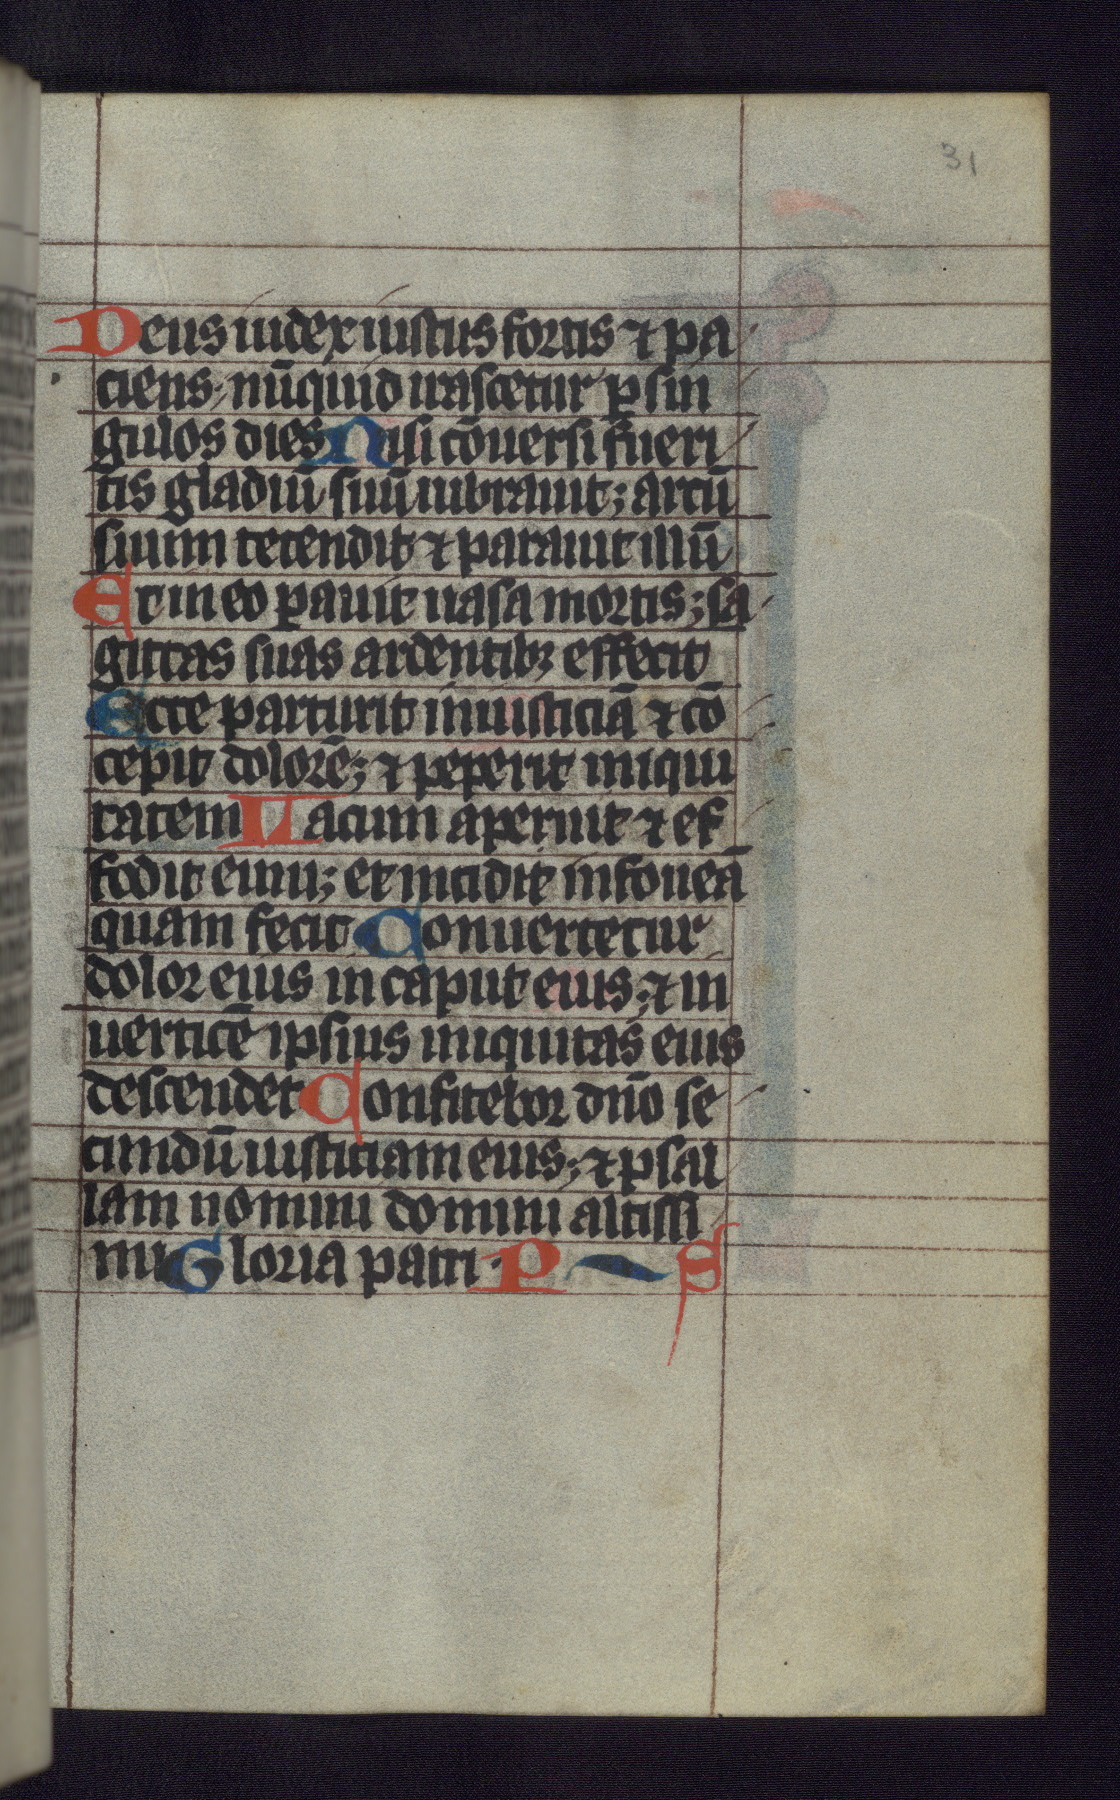 31
Deus iudex iustus fortis ⁊ pa
ciens; nūquid irascetur ꝑ sin
gulos dies Nisi cōuersi fueri
tis gladiū suū uibrauit; arcū
suum tetendit ⁊ parauit illū
Et in eo ꝑauit uasa mortis; sa
gittas suas ardentibꝫ effecit
Ecce parturit iniusticiā ⁊ cō
cepit dolorē; ⁊ peperit iniqui
tatem Lacum aperuit ⁊ ef
fodit eum; et incidit in foueā
quam fecit Conuertetur
dolor eius in caput eius; ⁊ in
uerticē ipsius iniquitas eius
descendet Confitebor dn̄o se
cundū iusticiam eius; ⁊ psal
lam nomini domini altissi
mi Gloria patri P S